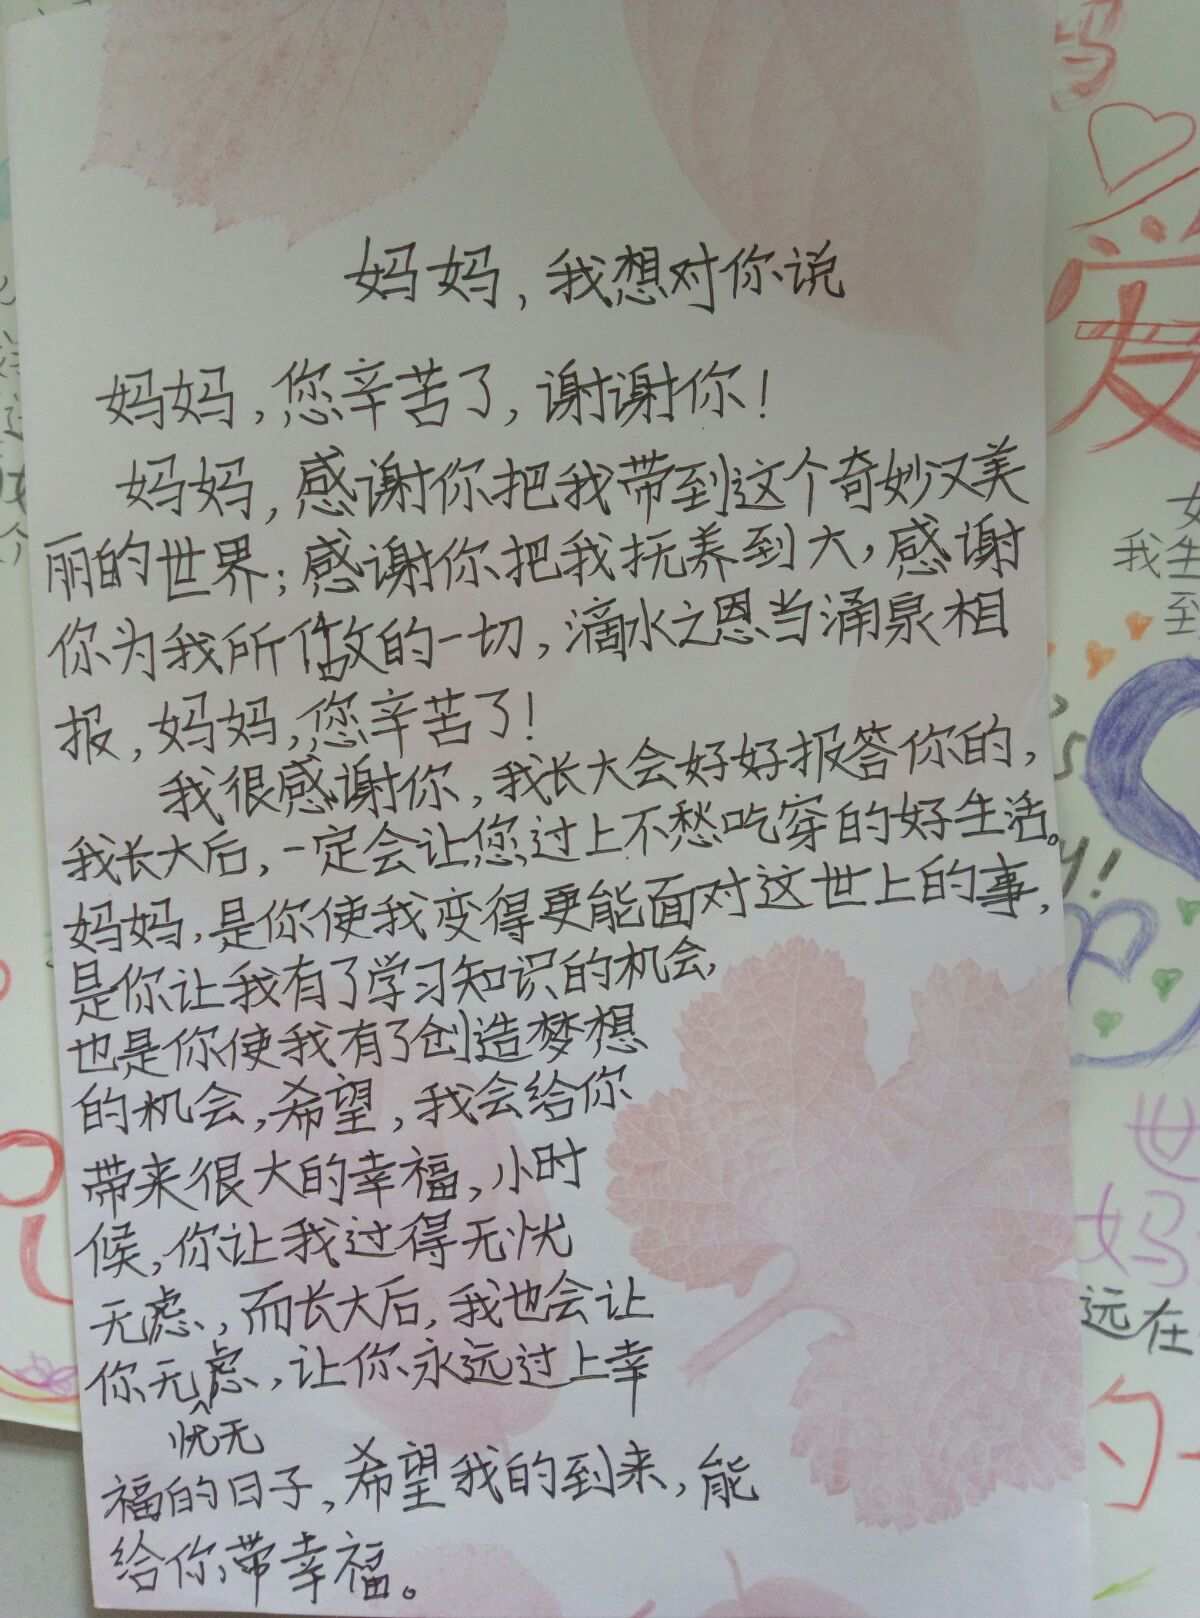 妈妈，我想对你说
妈妈，您辛苦了，谢谢你！
妈妈，感谢你把我带到这个奇妙又美
丽的世界；感谢你把我抚养到大，感谢
你为我所做的一切，滴水之恩当涌泉相
报，妈妈，您辛苦了！
我很感谢你，我长大会好好报答你的，
我长大后，一定会让您过上不愁吃穿的好生活。
妈妈，是你使我变得更能面对这世上的事，
是你让我有了学习知识的机会，
也是你使我有了创造梦想
的机会，希望，我会给你
带来很大的幸福，小时
候，你让我过得无忧
无虑，而长大后，我也会让
你无忧无虑，让你永远过上幸
福的日子，希望我的到来，能
给你带幸福。
妈
爱
我生
到
世
妈
远在
的